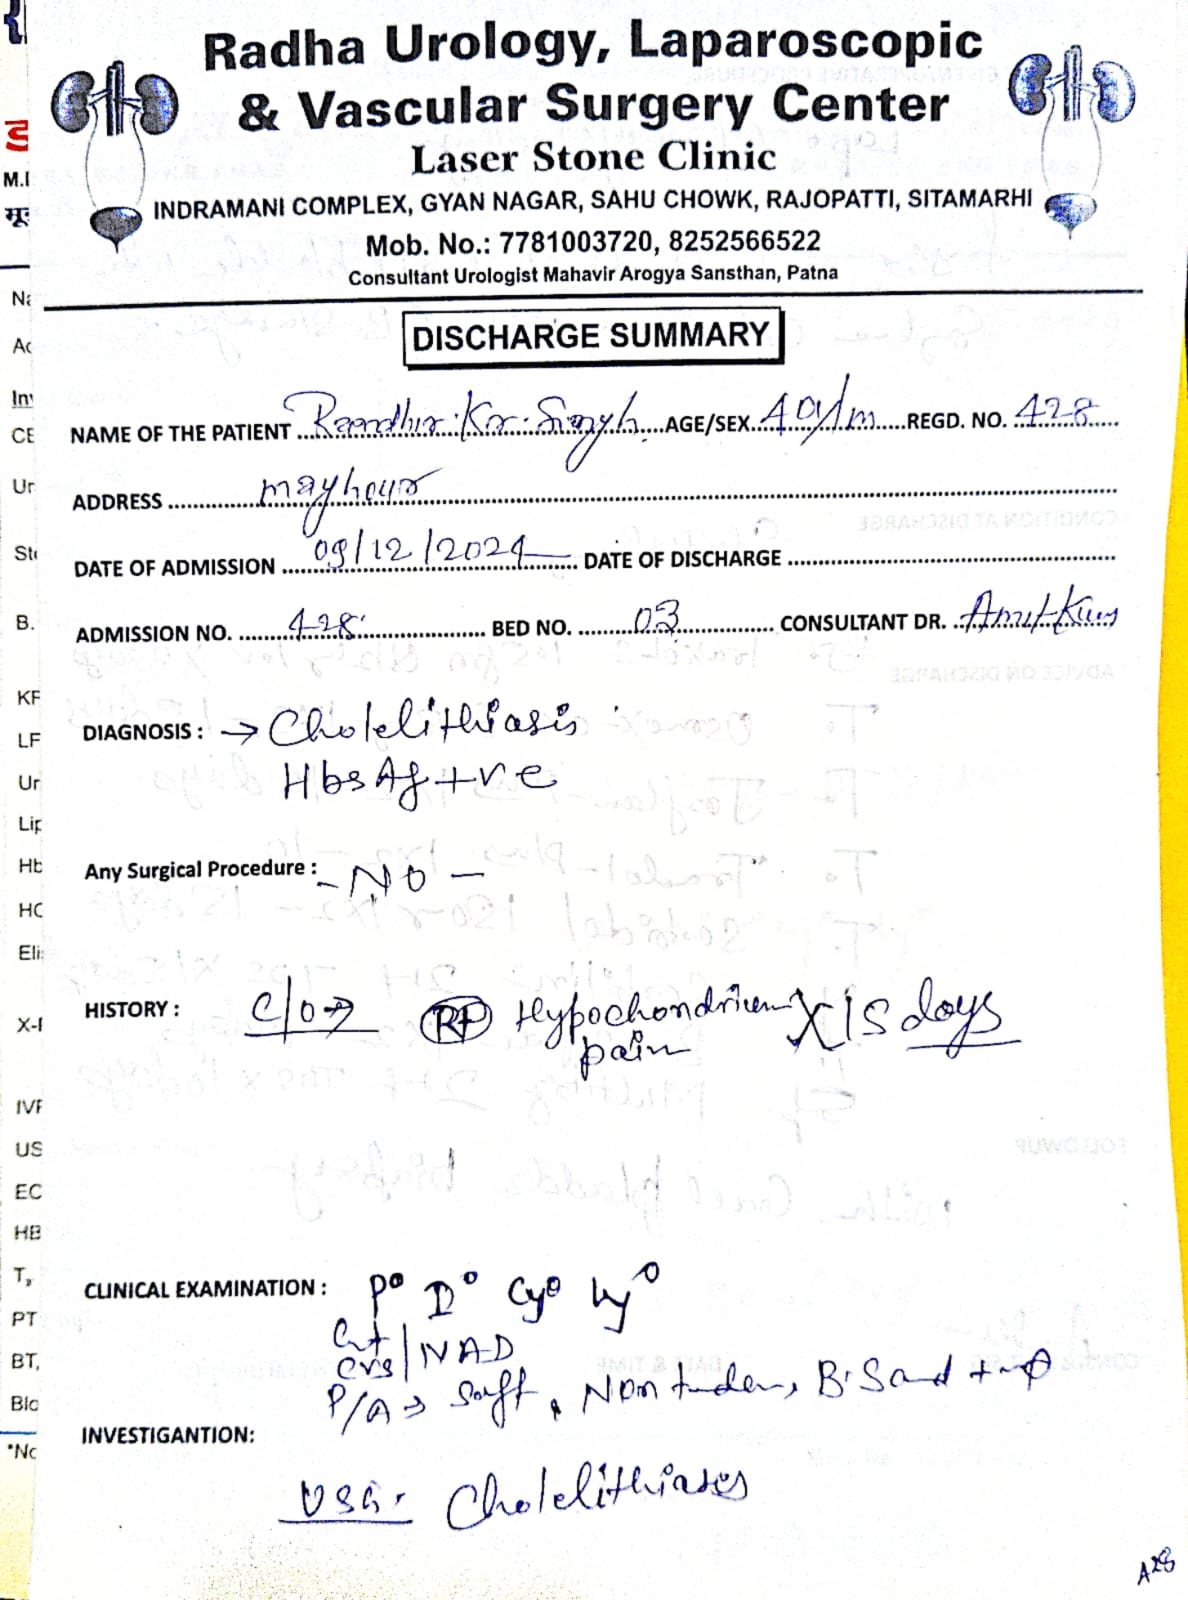 Radha Urology, Laparoscopic
& Vascular Surgery Center
Laser Stone Clinic
INDRAMANI COMPLEX, GYAN NAGAR, SAHU CHOWK, RAJOPATTI, SITAMARHI
Mob. No.: 7781003720, 8252566522
Consultant Urologist Mahavir Arogya Sansthan, Patna
DISCHARGE SUMMARY
NAME OF THE PATIENT Randhir Kr. Singh AGE/SEX. 40y/m REGD. NO. 428
ADDRESS
DATE OF ADMISSION 09/12/2024 DATE OF DISCHARGE
ADMISSION NO. 428 BED NO. 03 CONSULTANT DR. Amit Kum
DIAGNOSIS : → Cholelithiasis
HbsAg +ve
Any Surgical Procedure : - No -
HISTORY : C/o → Rt Hypochondrium X 15 days
pain
CLINICAL EXAMINATION : P° D° Cy° Ly°
CVS / NAD
P/A → Soft, Non tender, B.Sound +
INVESTIGANTION:
USG. Cholelithiases
M.I
Na
Ac
Inv
CE
Ur
Sto
B.
KF
LF
Ur
Lip
Hb
HC
Elis
X-I
IVF
US
EC
HB
T,
PT
BT,
Blo
*No